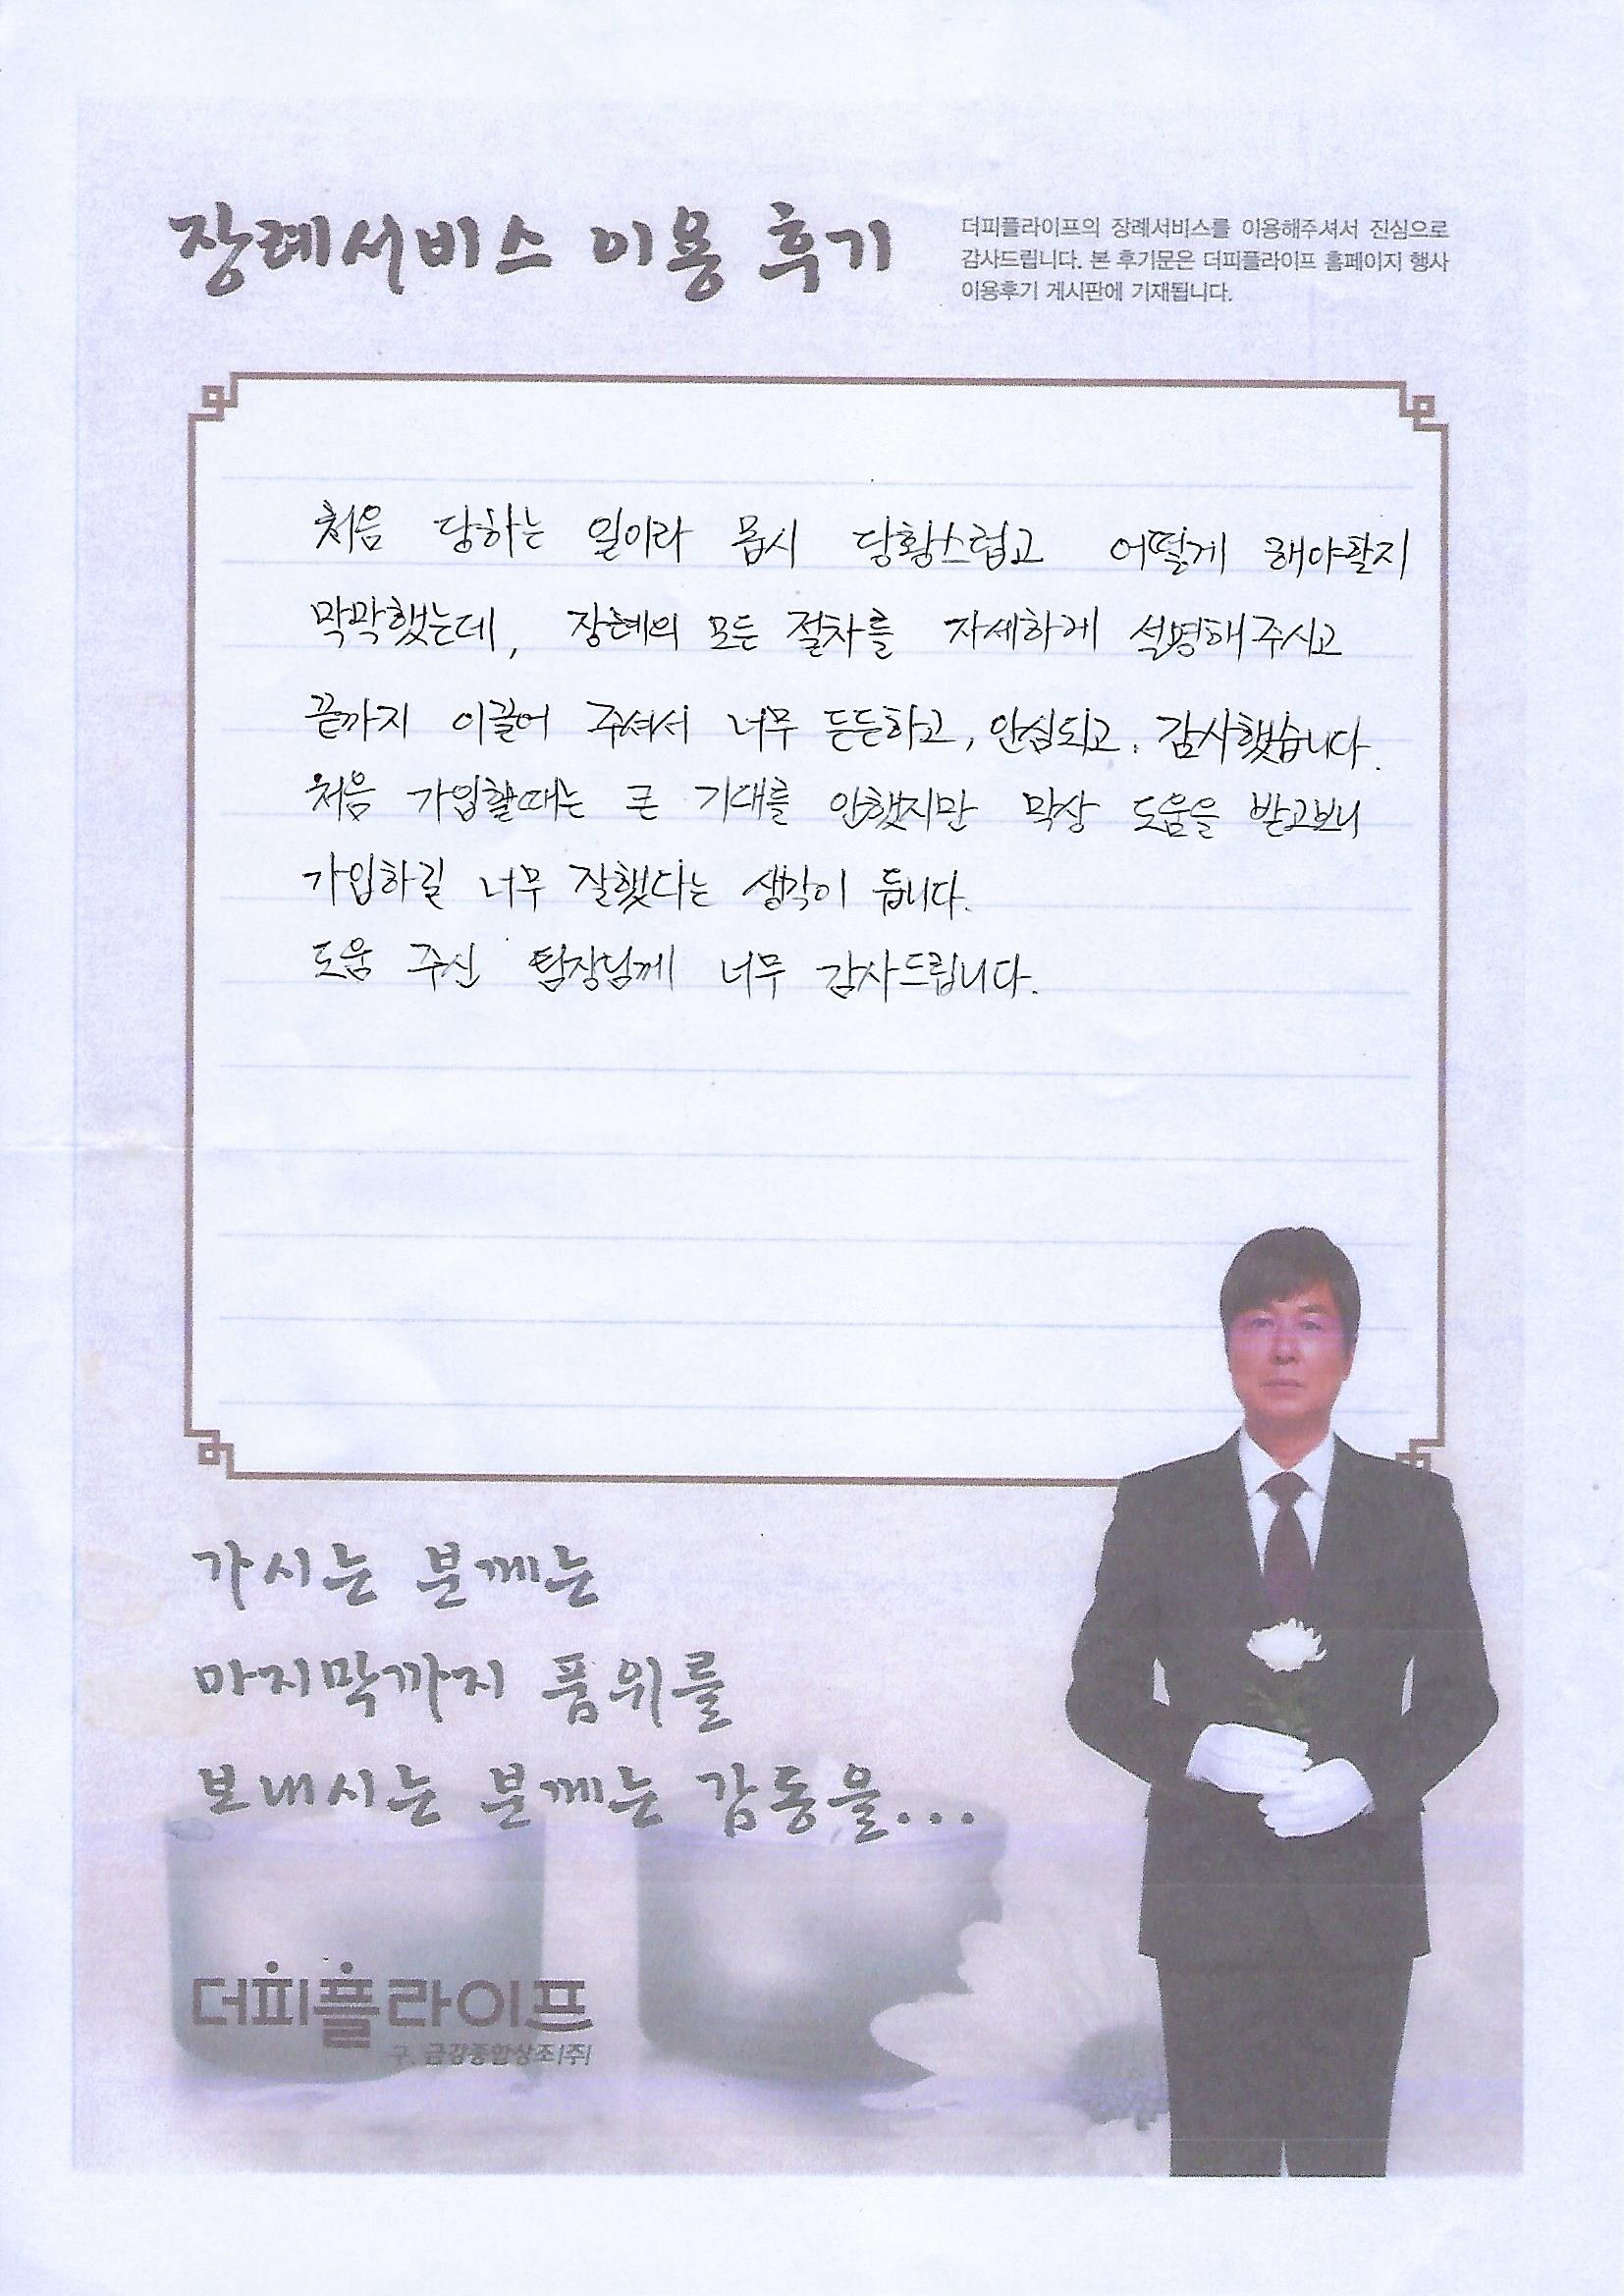 장례서비스 이용 후기
더피플라이프의 장례서비스를 이용해주셔서 진심으로
감사드립니다. 본 후기문은 더피플라이프 홈페이지 행사
이용후기 게시판에 기재됩니다.
처음 당하는 일이라 몹시 당황스럽고 어떻게 해야할지
막막했는데, 장례의 모든 절차를 자세하게 설명해주시고
끝까지 이끌어 주셔서 너무 든든하고, 안심되고, 감사했습니다.
처음 가입할때는 큰 기대를 안했지만 막상 도움을 받고보니
가입하길 너무 잘했다는 생각이 듭니다.
도움 주신 팀장님께 너무 감사드립니다.
가시는 분께는
마지막까지 품위를
보내시는 분께는 감동을...
더피플라이프
구. 금강종합상조(주)